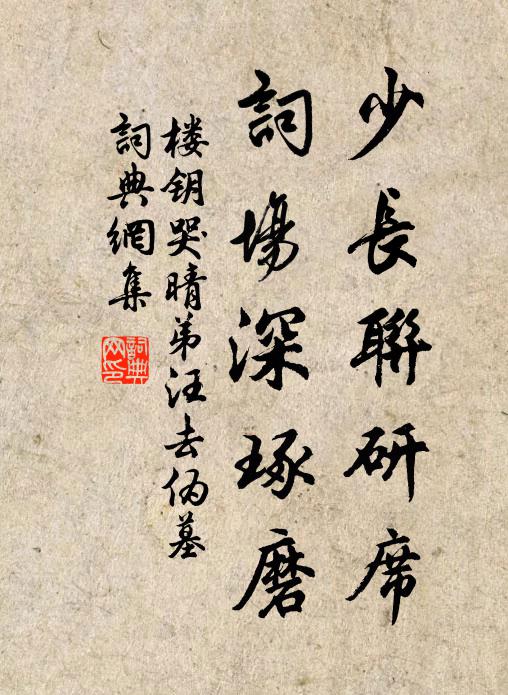 少長聯研席
詞場深琢磨
楼钥哭晴弟汪去伪墓
詞典網集
詞典網印